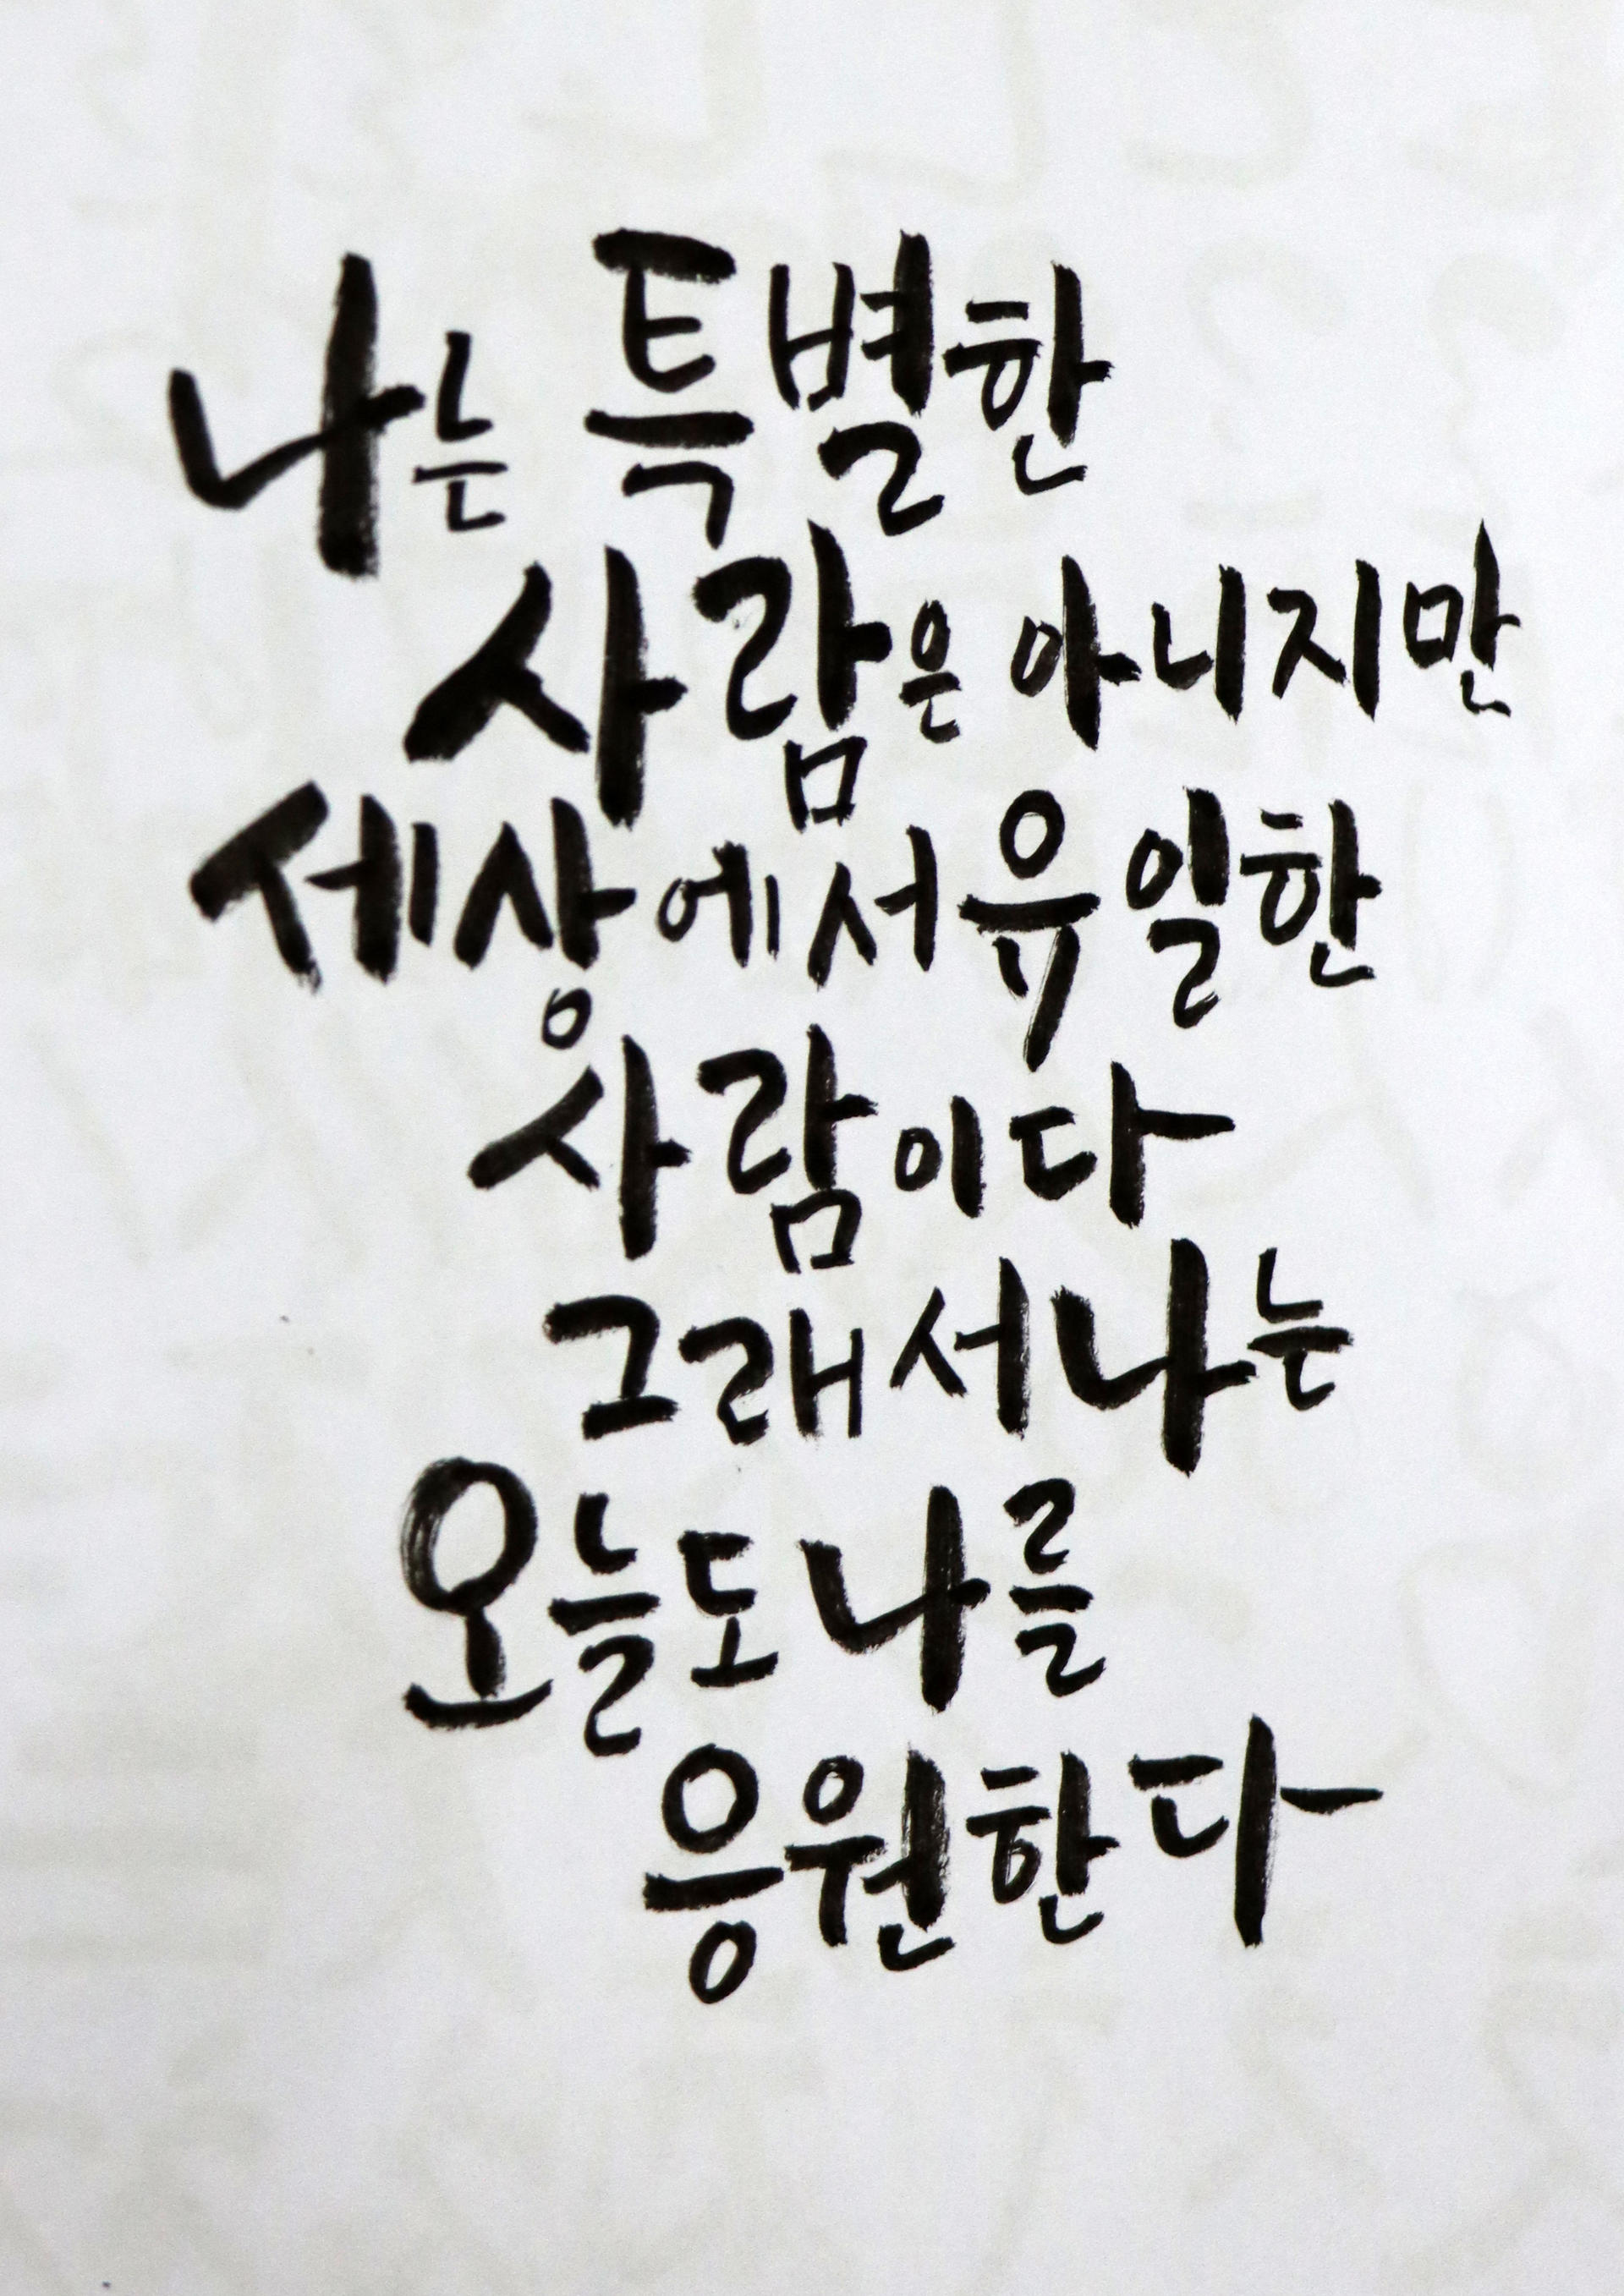 나는 특별한
사람은 아니지만
세상에서 유일한
사람이다
그래서 나는
오늘도 나를
응원한다